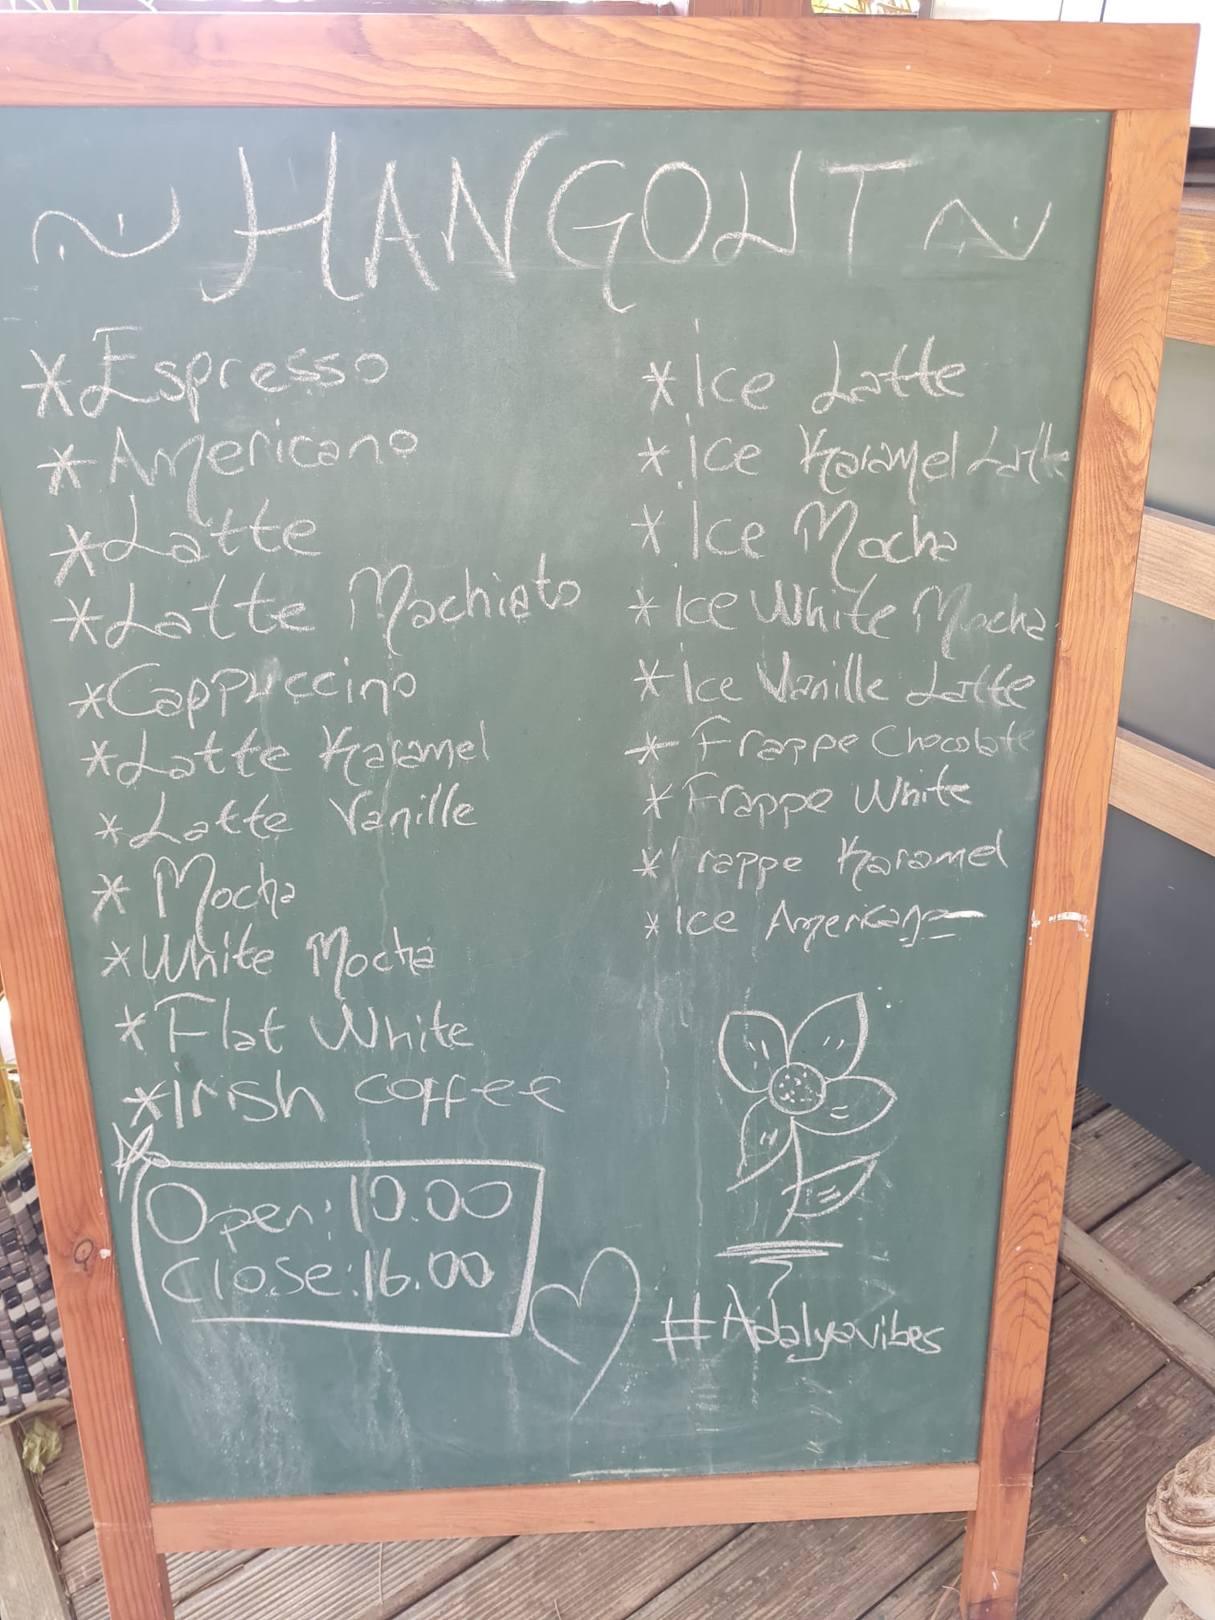 ~ HANGOUT ~
* Espresso
* Americano
* Latte
* Latte Machiato
* Cappuccino
* Latte Karamel
* Latte Vanille
* Mocha
* White Mocha
* Flat White
* irish coffee
Open: 10.00
Close: 16.00
* Ice Latte
* İce Karamel Latte
* Ice Mocha
* Ice White Mocha
* Ice Vanille Latte
* Frappe Chocolate
* Frappe White
* Frappe Karamel
* Ice Americano
#Adalyavibes